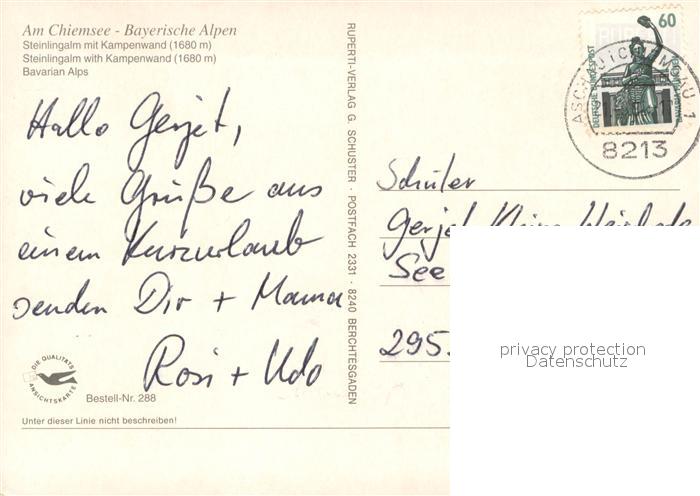 Am Chiemsee - Bayerische Alpen
Steinlingalm mit Kampenwand (1680 m)
Steinlingalm with Kampenwand (1680 m)
Bavarian Alps
Hallo Gerjet,
viele Grüße aus
einem Kurzurlaub
senden Dir + Mama
Rosi + Udo
DIE QUALITÄTS
ANSICHTSKARTE
Bestell-Nr. 288
Unter dieser Linie nicht beschreiben!
RUPERTI-VERLAG G. SCHUSTER · POSTFACH 2331 · 8240 BERCHTESGADEN
60
DEUTSCHE BUNDESPOST
8213
Schüler
Gerjet
See
295
privacy protection
Datenschutz